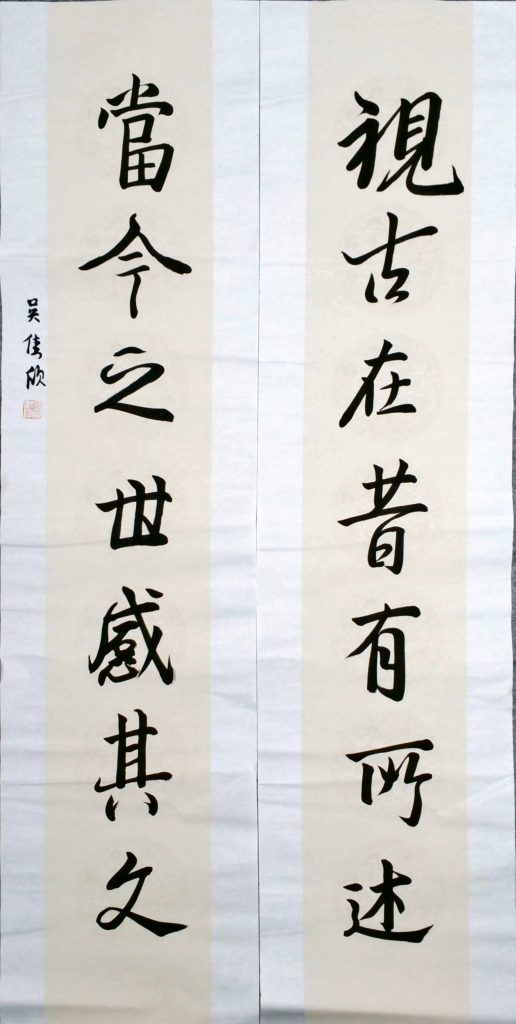 視古在昔有所述
當今之世感其文
吳佳欣